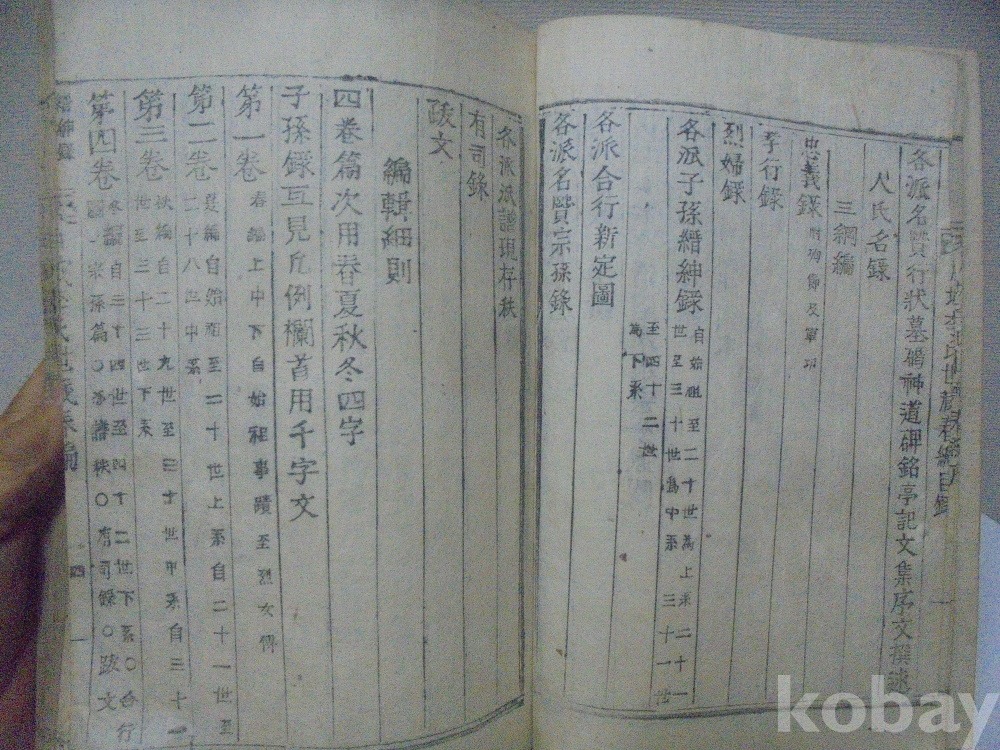 各派名賢行狀墓碣神道碑銘亭記文集序文撰述
人氏名錄
三綱編
忠義錄
孝行錄
烈婦錄
各派子孫縉紳錄 自始祖至二十世為上系二十一
世至三十世為中系三十一世
至四十二世
為下系
各派合行新定圖
各派名賢宗孫錄
各派派譜現存秩
有司錄
跋文
編輯細則
四卷篇次用春夏秋冬四字
子孫錄互見凡例欄首用千字文
第一卷 春編上中下自始祖事蹟至烈女
第二卷 夏編自始祖至二十世上系自二十一世至
二十八世中系
第三卷 秋編自二十九世至三十世中系自三十一
世至三十三世下系
第四卷 冬編自三十四世至四十二世下系〇合行
宗孫篇〇派譜秩〇有司錄〇跋文
四
一
kobay